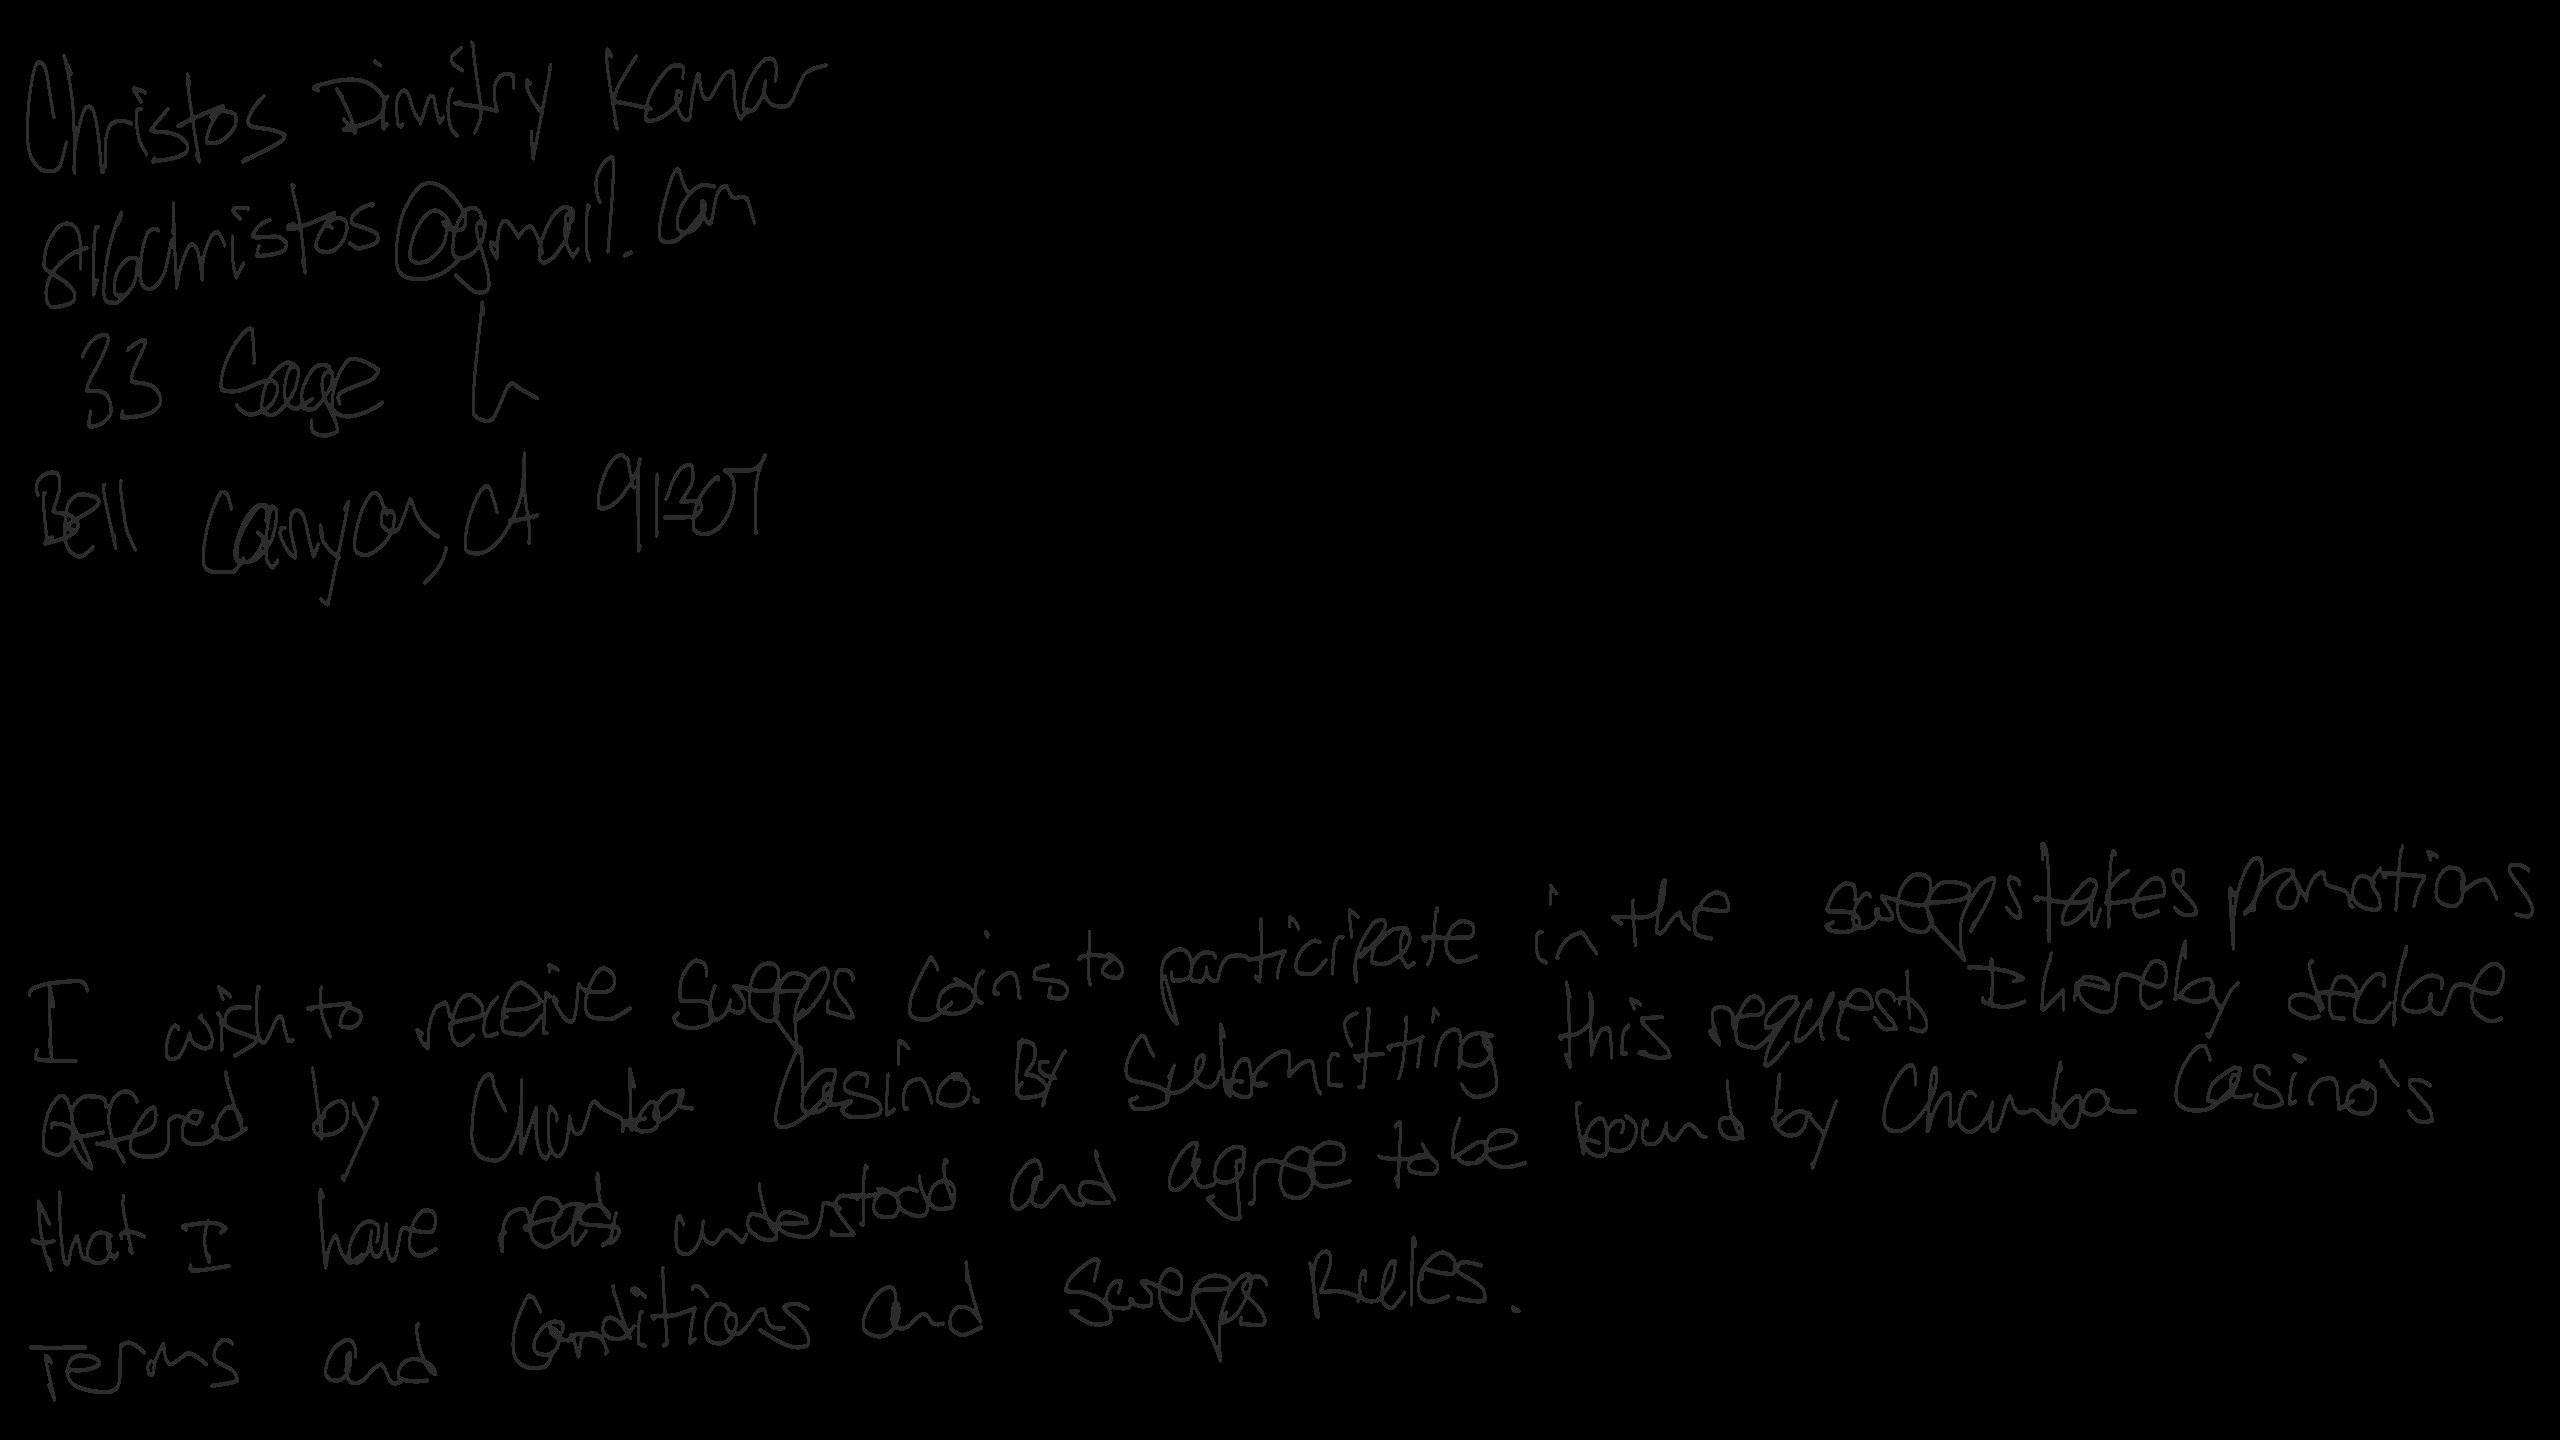 Christos Dimitry Kamar
816christos@gmail.com
33 Sage Ln
Bell Canyon, CA 91307
I wish to receive Sweeps Coins to participate in the sweepstakes promotions
offered by Chumba Casino. By submitting this request I hereby declare
that I have read understood and agree to be bound by Chumba Casino's
Terms and Conditions and Sweeps Rules.